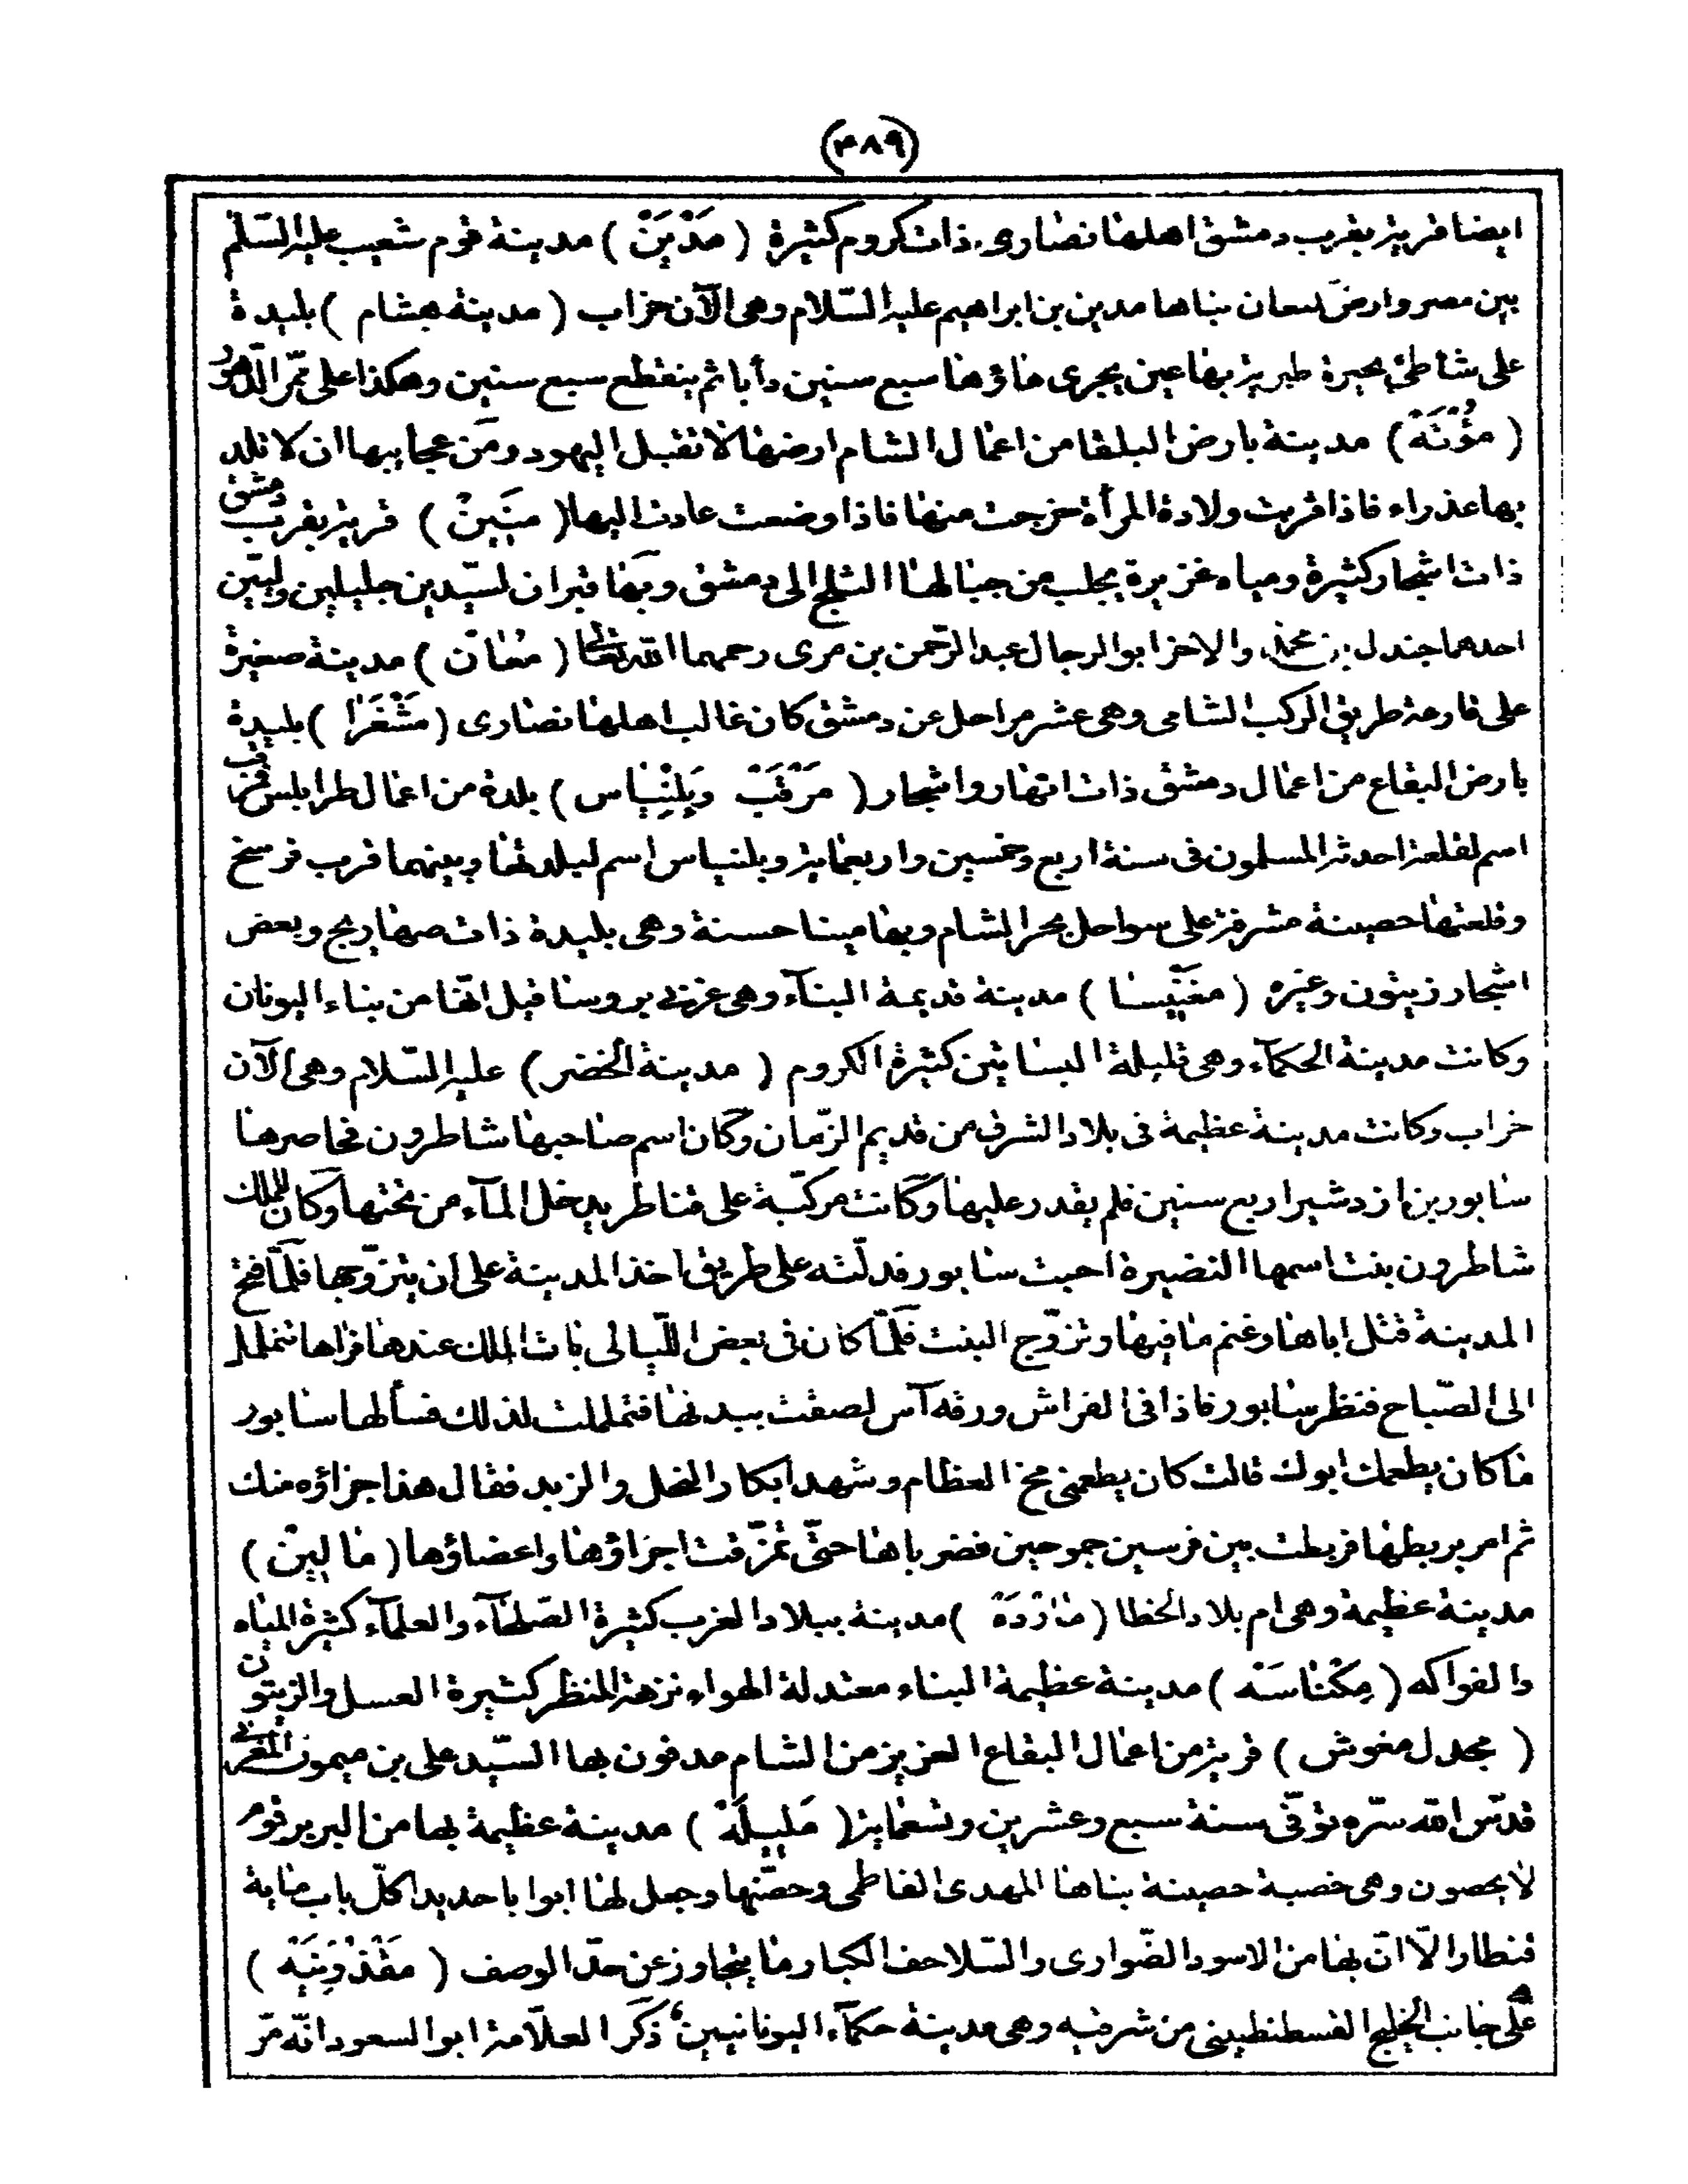 (٤٨٩)
ايضا قرية بقرب دمشق اهلها نصارى ذات كروم كثيرة ( مَدْيَنْ ) مدينة قوم شعيب عليه السّلم
بين مصر وارض بناها مدين بن ابراهيم عليه السّلام وهى الآن خراب ( مدينة هشام ) بليدة
على شاطئ بحيرة طبرية بها عين يجرى ماؤها سبع سنين دأبا ثم ينقطع سبع سنين وهكذا على ممّر الدّهور
( مؤُتَهْ ) مدينة بارض البلقا من اعمال الشام ارضها لا تقبل اليهود ومن عجايبها ان لا تلد
بها عذراء فاذا قربت ولادة المرأة خرجت منها فاذا وضعت عادت اليها ( مَنِينْ ) قرية بقرب دمشق
ذات اشجار كثيرة ومياه غزيرة يجلب من جبالها الثلج الى دمشق وبها قبران لسيّدين جليلين وليّين
احدهما جندل بن محمد والاخر ابو الرجال عبد الرّحمن بن مرى رحمهما الله تعالى ( مُعان ) مدينة صغيرة
على قارعة طريق الركب الشامى وهى عشر مراحل عن دمشق كان غالب اهلها نصارى ( مَشْغَرَا ) بليدة
بارض البقاع من اعمال دمشق ذات انهار واشجار ( مَرْقَبْ وَبِلِنْيَاس ) بلدة من اعمال طرابلس مرقب
اسم لقلعة احدثه المسلمون فى سنة اربع وخمسين واربعماية وبلنياس اسم لبلدتها وبينهما قرب فرسخ
وقلعتها حصينة مشرفة على سواحل بحر الشام وبها مينا حسنة وهى بليدة ذات صهاريج وبعض
اشجار زيتون وغيره ( مغَنَّيسا ) مدينة قديمة البنآء وهى غربى بروسا قيل انّها من بناء اليونان
وكانت مدينة الحكمآء وهى قليلة البساتين كثيرة الكروم ( مدينة الخضر ) عليه السّلام وهى الآن
خراب وكانت مدينة عظيمة فى بلاد الشرق من قديم الزّمان وكان اسم صاحبها شاطرون فحاصرها
سابور بن ازدشير اربع سنين فلم يقدر عليها وكانت مركّبة على قناطر يدخل المآء من تحتها وكان للملك
شاطرون بنت اسمها النضيرة احبت سابور فدلّته على طريق اخذ المدينة على ان يتزوّجها فلمّا فتح
المدينة قتل اباها وغنم ما فيها وتزوّج البنت فلمّا كان فى بعض اللّيالى بات الملك عندها فراها تتململ
الى الصّباح فنظر سابور فاذا فى الفراش ورقة آس لصقت ببدنها فتململت لذلك فسألها سابور
ما كان يطعمك ابوك قالت كان يطعمنى مخ العظام وشهد ابكار النحل والزبد فقال هذا جزاؤه منك
ثم امر بربطها فربطت بين فرسين جموحين فضرباها حتّى تمزّقت اجزاؤها واعضاؤها ( ما لِيِنْ )
مدينة عظيمة وهى ام بلاد الخطا ( مَارْدَهْ ) مدينة ببلاد الغرب كثيرة الصّلحآء والعلمآء كثيرة المياه
والفواكه ( مِكْناسَهْ ) مدينة عظيمة البناء معتدلة الهواء نزهة المنظر كثيرة العسل والزيتون
( مجدل معوش ) قرية من اعمال البقاع العزيز من الشام مدفون بها السّيد على بن ميمون المغربى
قدّس الله سرّه توفّى سنة سبع وعشرين وتسعماية ( مَلِيِلَهْ ) مدينة عظيمة بها من البربر قوم
لا يحصون وهى خصبة حصينة بناها المهدى الفاطمى وحصّنها وجعل لها ابوابا حديدا كلّ باب ماية
قنطار الّا انّ بها من الاسود الضّوارى والسّلاحف الكبار ما يتجاوز عن حدّ الوصف ( مَقْذُونِيَهْ )
على جانب الخليج القسطنطينى من شرقيه وهى مدينة حكمآء اليونانيين ذكر العلّامة ابو السعود انّه مرّ